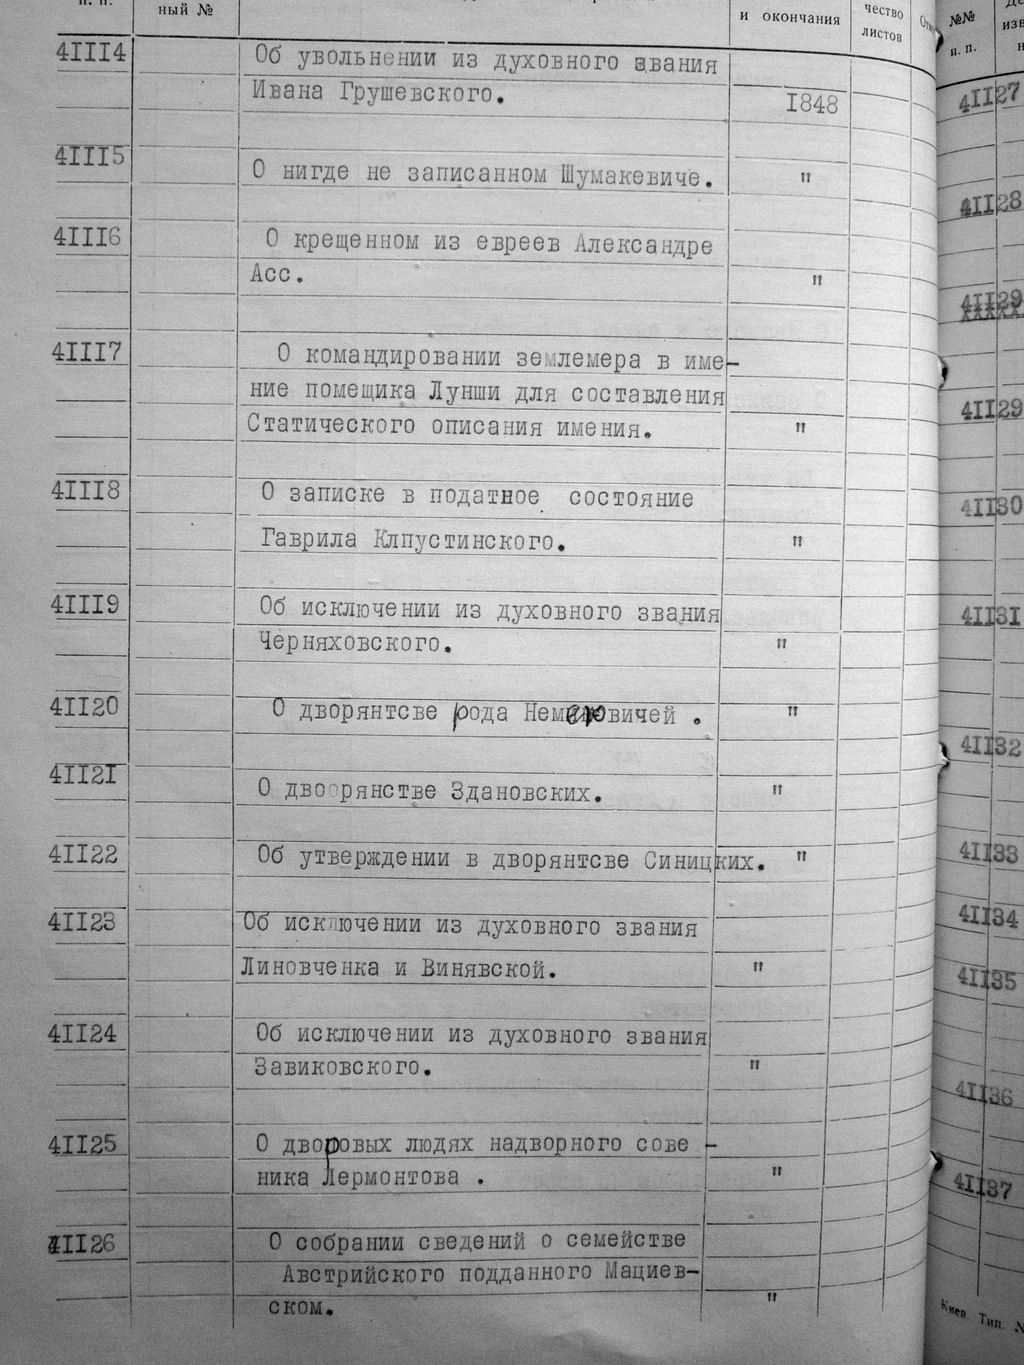 п. п.
ный №
и окончания
чество
листов
41114 Об увольнении из духовного звания
Ивана Грушевского. 1848
41115 О нигде не записанном Шумакевиче. "
41116 О крещенном из евреев Александре
Асс. "
41117 О командировании землемера в име-
ние помещика Лунши для составления
Статического описания имения. "
41118 О записке в податное состояние
Гаврила Клпустинского. "
41119 Об исключении из духовного звания
Черняховского. "
41120 О дворянтсве рода . "
41121 О двоорянстве Здановских. "
41122 Об утверждении в дворянтсве Синицких. "
41123 Об исключении из духовного звания
Линовченка и Винявской. "
41124 Об исключении из духовного звания
Завиковского. "
41125 О дворовых людях надворного сове -
ника Лермонтова . "
41126 О собрании сведений о семействе
Австрийского подданного Мациев-
ском. "
№№
п. п.
41127
41128
41129
41129
41130
41131
41132
41133
41134
41135
41136
41137
Киев Тип.